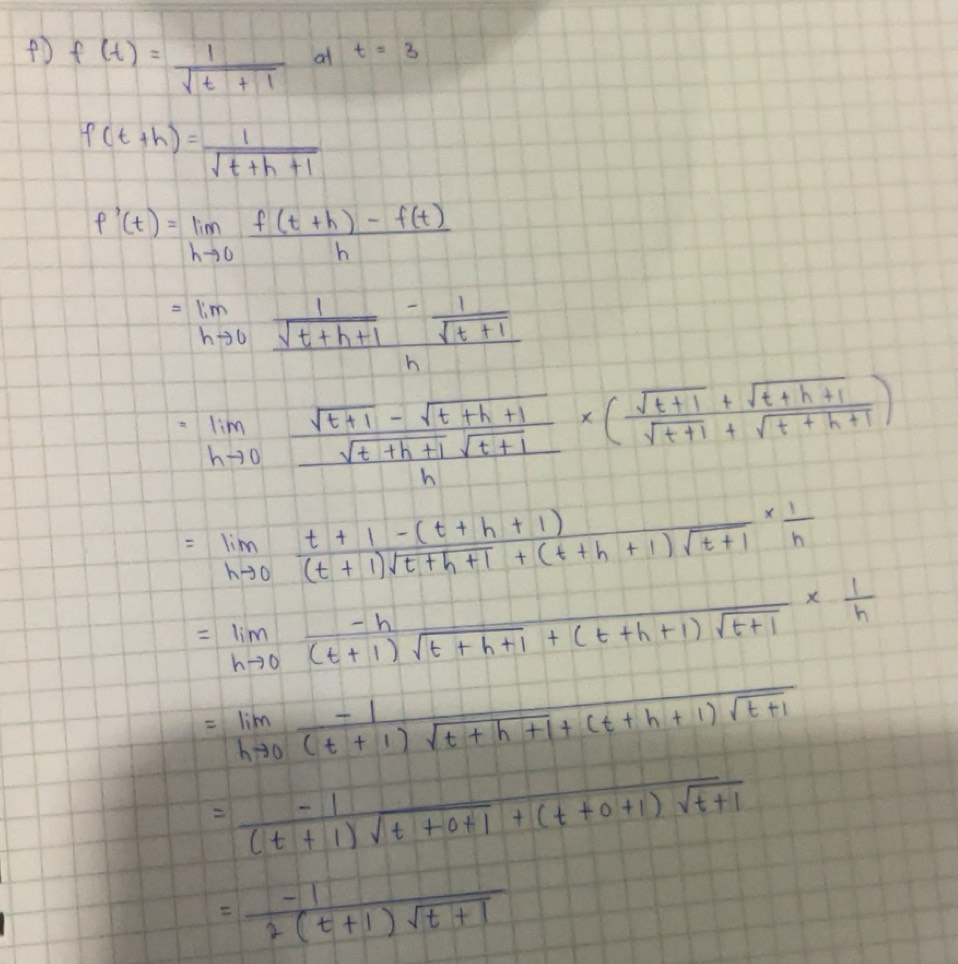 f) f(t) = 1/√(t + 1) at t = 3
f(t+h) = 1/√(t+h+1)
f'(t) = lim h→0 (f(t+h) - f(t))/h
= lim h→0 (1/√(t+h+1) - 1/√(t+1))/h
= lim h→0 ((√(t+1) - √(t+h+1))/(√(t+h+1) √(t+1)))/h × ((√(t+1) + √(t+h+1))/(√(t+1) + √(t+h+1)))
= lim h→0 (t+1-(t+h+1))/((t+1)√(t+h+1) + (t+h+1)√(t+1)) × 1/h
= lim h→0 -h/((t+1)√(t+h+1) + (t+h+1)√(t+1)) × 1/h
= lim h→0 -1/((t+1)√(t+h+1) + (t+h+1)√(t+1))
= -1/((t+1)√(t+0+1) + (t+0+1)√(t+1))
= -1/(2(t+1)√(t+1))